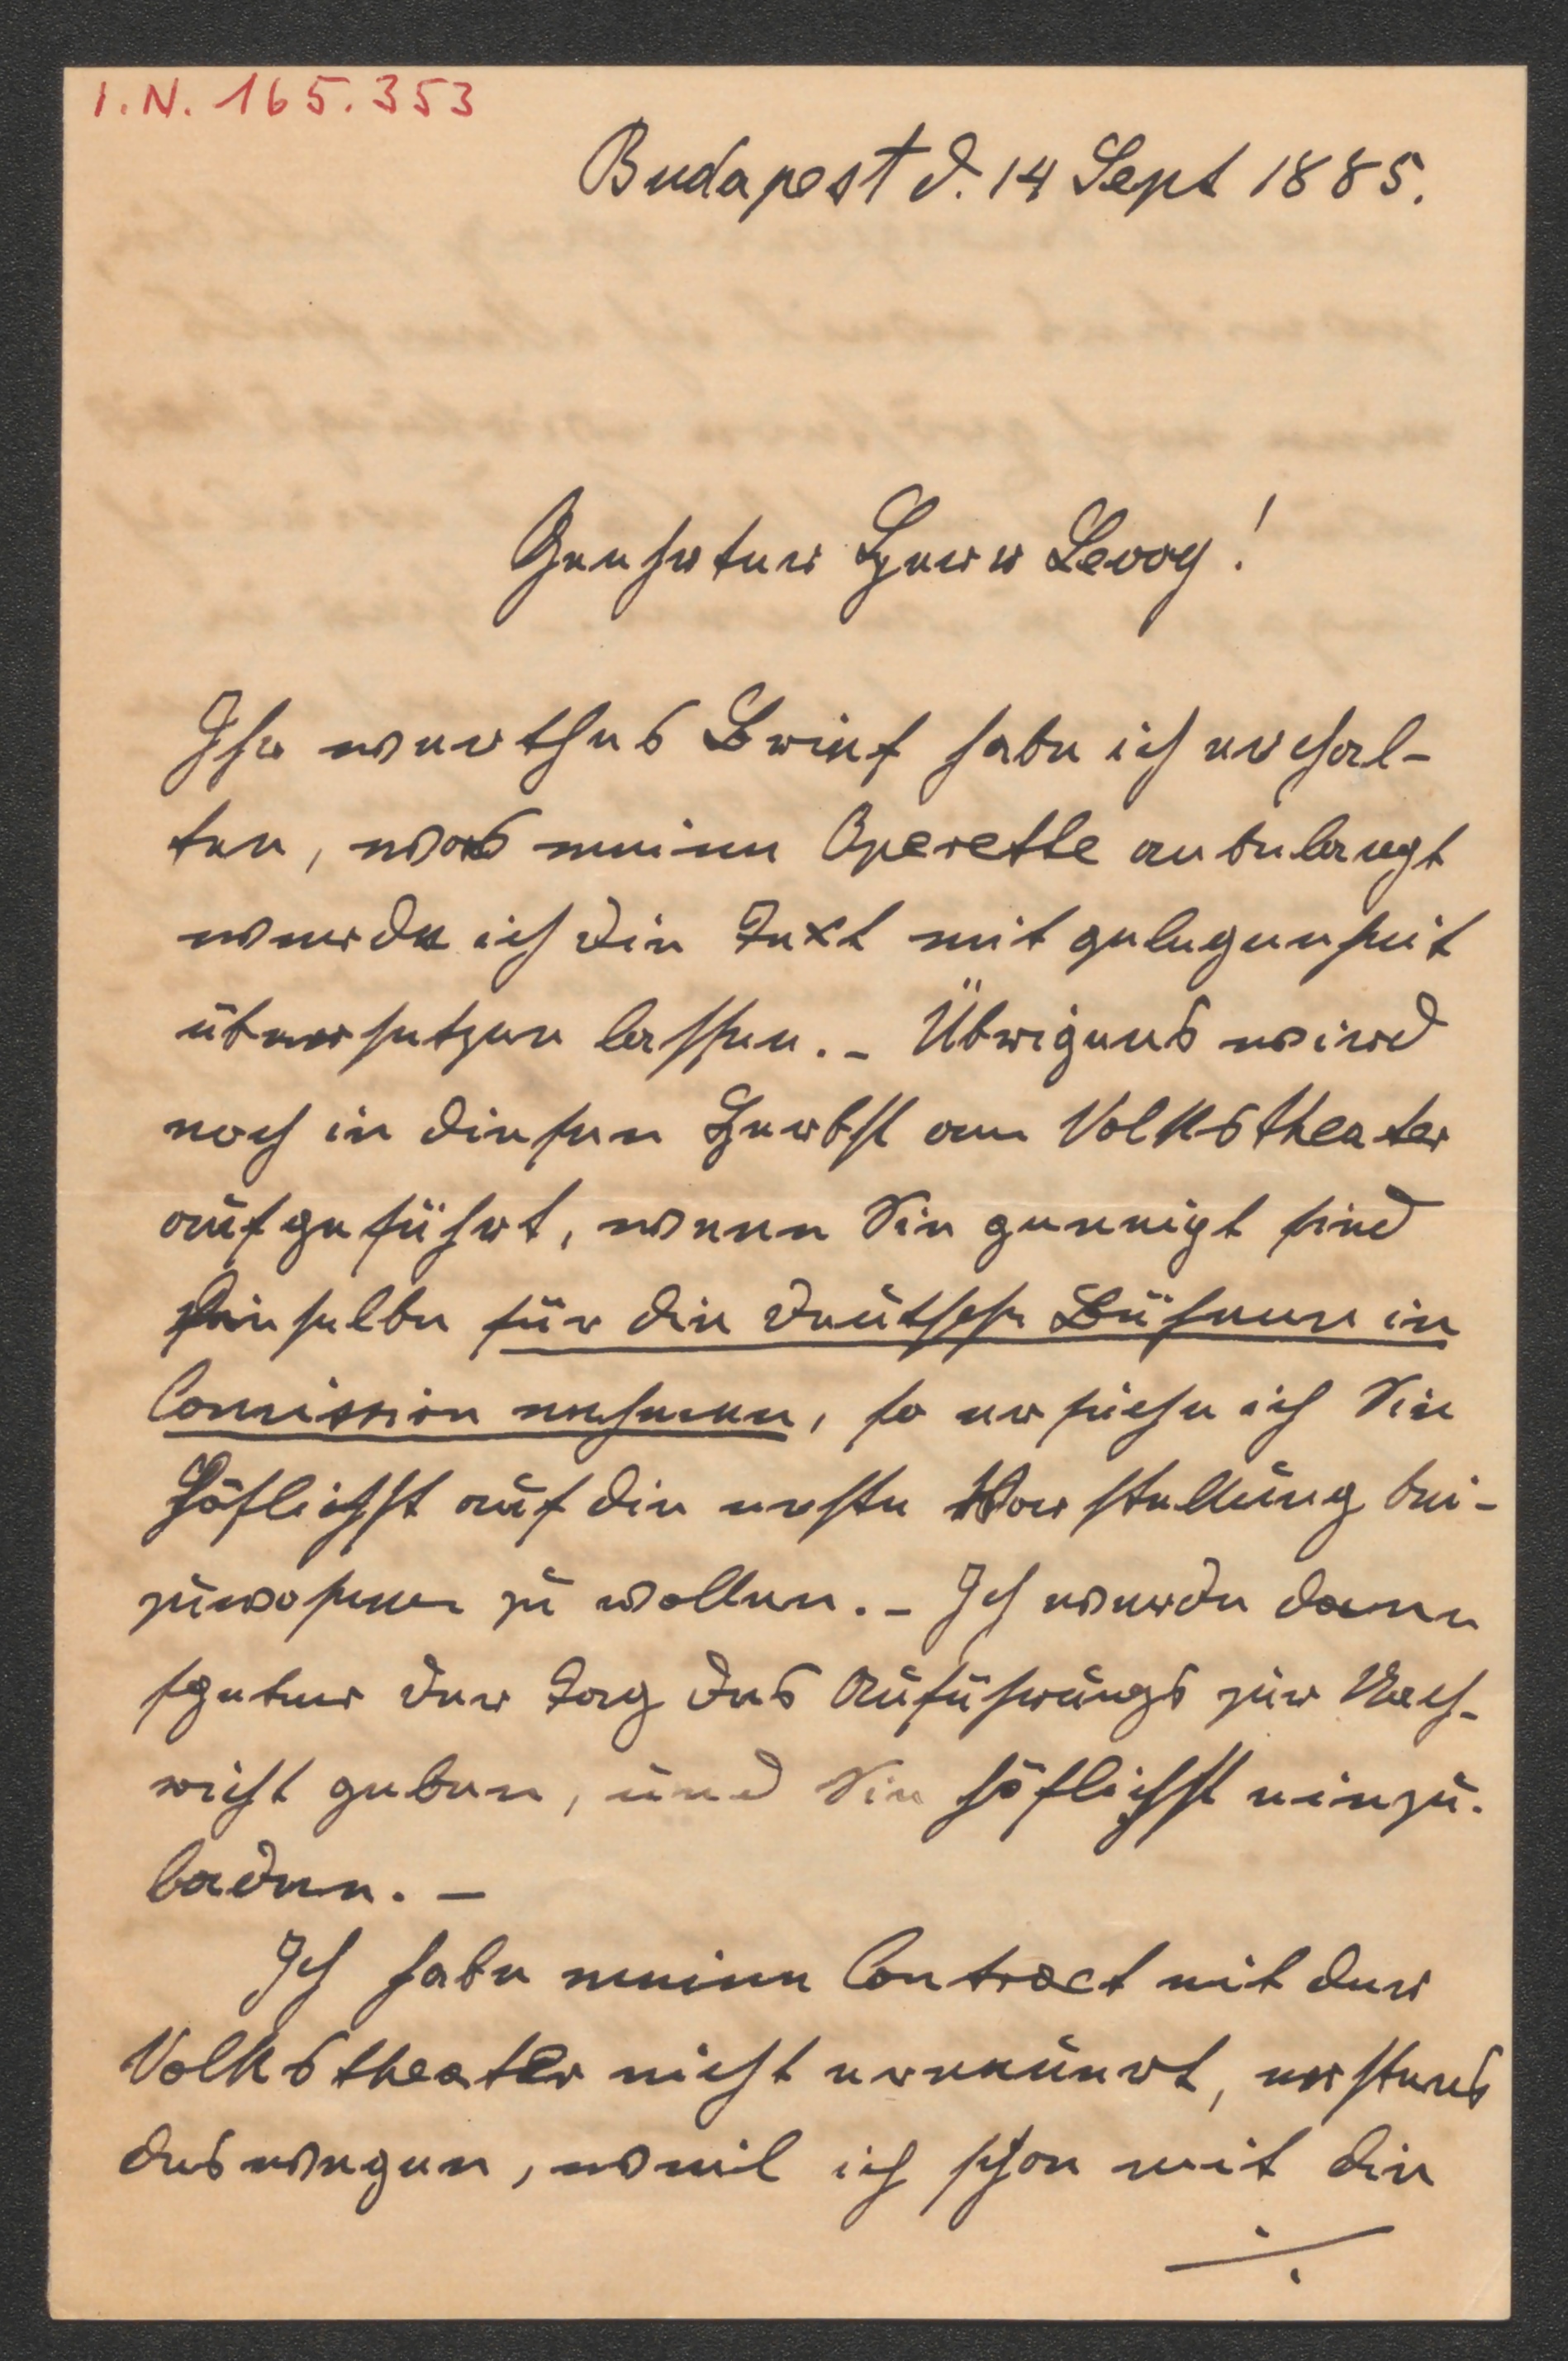 I.N. 165.353
Budapest d. 14 Sept 1885.
Geehrter Herr Levy!
Ihr werthes Brief habe ich erhal-
ten, was meine Operette anbelangt
werde ich die Text mit gelegenheit
übersetzen lassen. – Übrigens wird
noch in diesen Herbst am Volkstheater
aufgeführt, wenn Sie geneigt sind
dieselbe für die deutsche Bühnen in
Comission nehmen, so ersuche ich Sie
Höflichst auf die erste Vorstellung bei-
zuwohnen zu wollen. – Ich werde dann
speter der Tag des Auführungs zur Nach-
richt geben, und Sie höflichst einzu-
laden. –
Ich habe meine Contract mit der
Volkstheater nicht erneuert, erstens
deswegen, weil ich schon mit die
./.